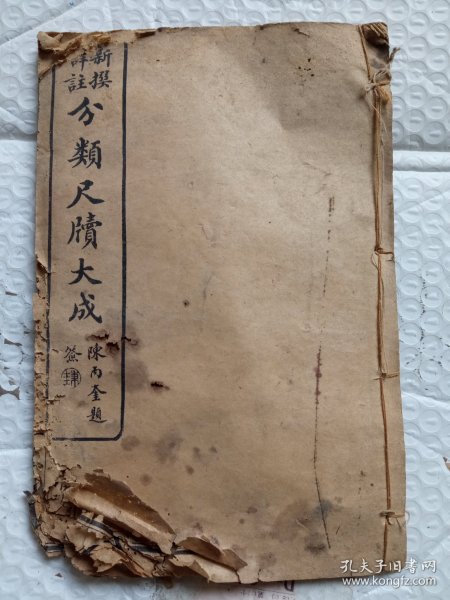 新撰
詳註
分類尺牘大成
陳丙奎題
签
孔夫子旧书网
www.kongfz.com